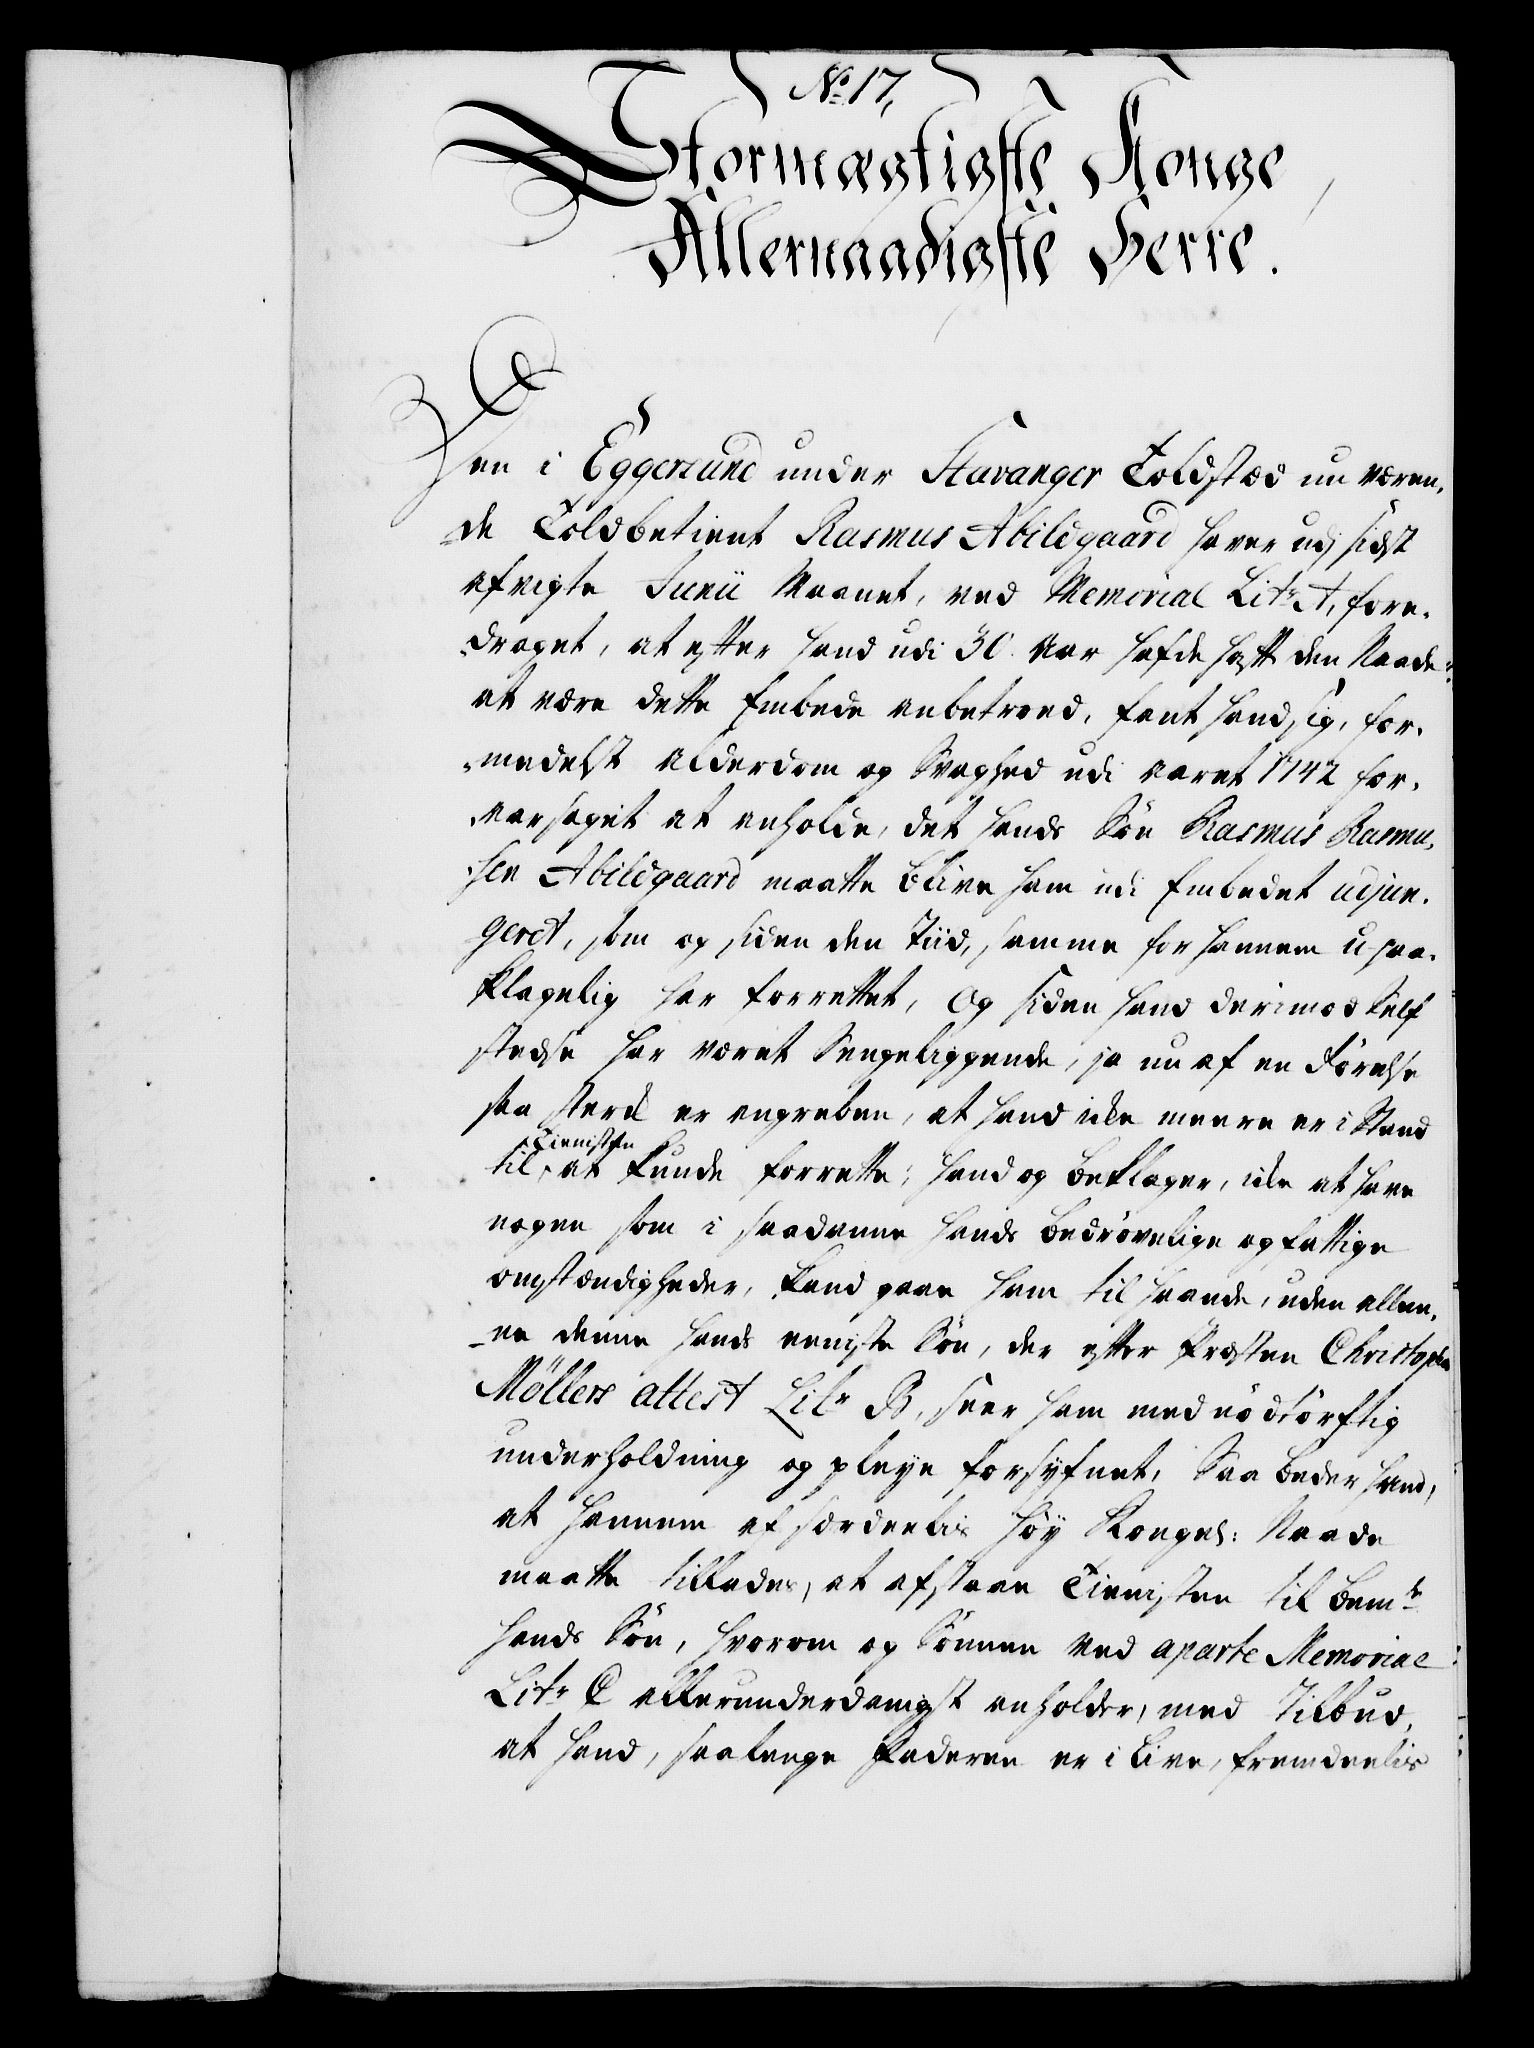 No 17,
Stormægtigste Konge
Allernaadigste Herre.
Den i Eggersund under Stavanger Toldstæd nu væren-
de Toldbetient Rasmus Abildgaard haver udj sidst
afvigte Junii Maanet, ved Memorial Litr A, fore-
draget, at efter hand udi 30 Aar hafde haft den Naade
at være dette Embede anbetroed, fant hand sig, for-
medelst Alderdom og Svaghed udi Aaret 1742 for-
aarsaget at anholde, det hands Søn Rasmus Rasmu-
sen Abildgaard maatte blive ham udi Embedet adjun-
geret, som og siden den Tiid, samme for hannem upaa-
klagelig har forrettet, Og siden hand derimod Self
stedse har været Sengeliggende, ja nu af en Førelse
saa sterk er angreben, at hand icke meere er i Stand
Tienisten
til, at kunde forrette; hand og beklager, icke at have
nogen som i saadanne hands bedrøvelige og fattige
omstændigheder, kand gaae ham til haande, uden allee-
ne denne hands eeniste Søn, der efter Præsten Christopher
Møllers attest Litr B, seer ham med nødtørftig
underholdning og pleye forsyfnet, Saa beder hand,
at hannem af særdeelis Høy Kongel: Naade
maatte tillades, at afstaae Tienisten til bemte
hands Søn, hvorom og Sønnen ved aparte Memorial
Litr C allerunderdanigst anholder, med Tilbud,
at hand, saalenge Faderen er i Live, fremdeelis